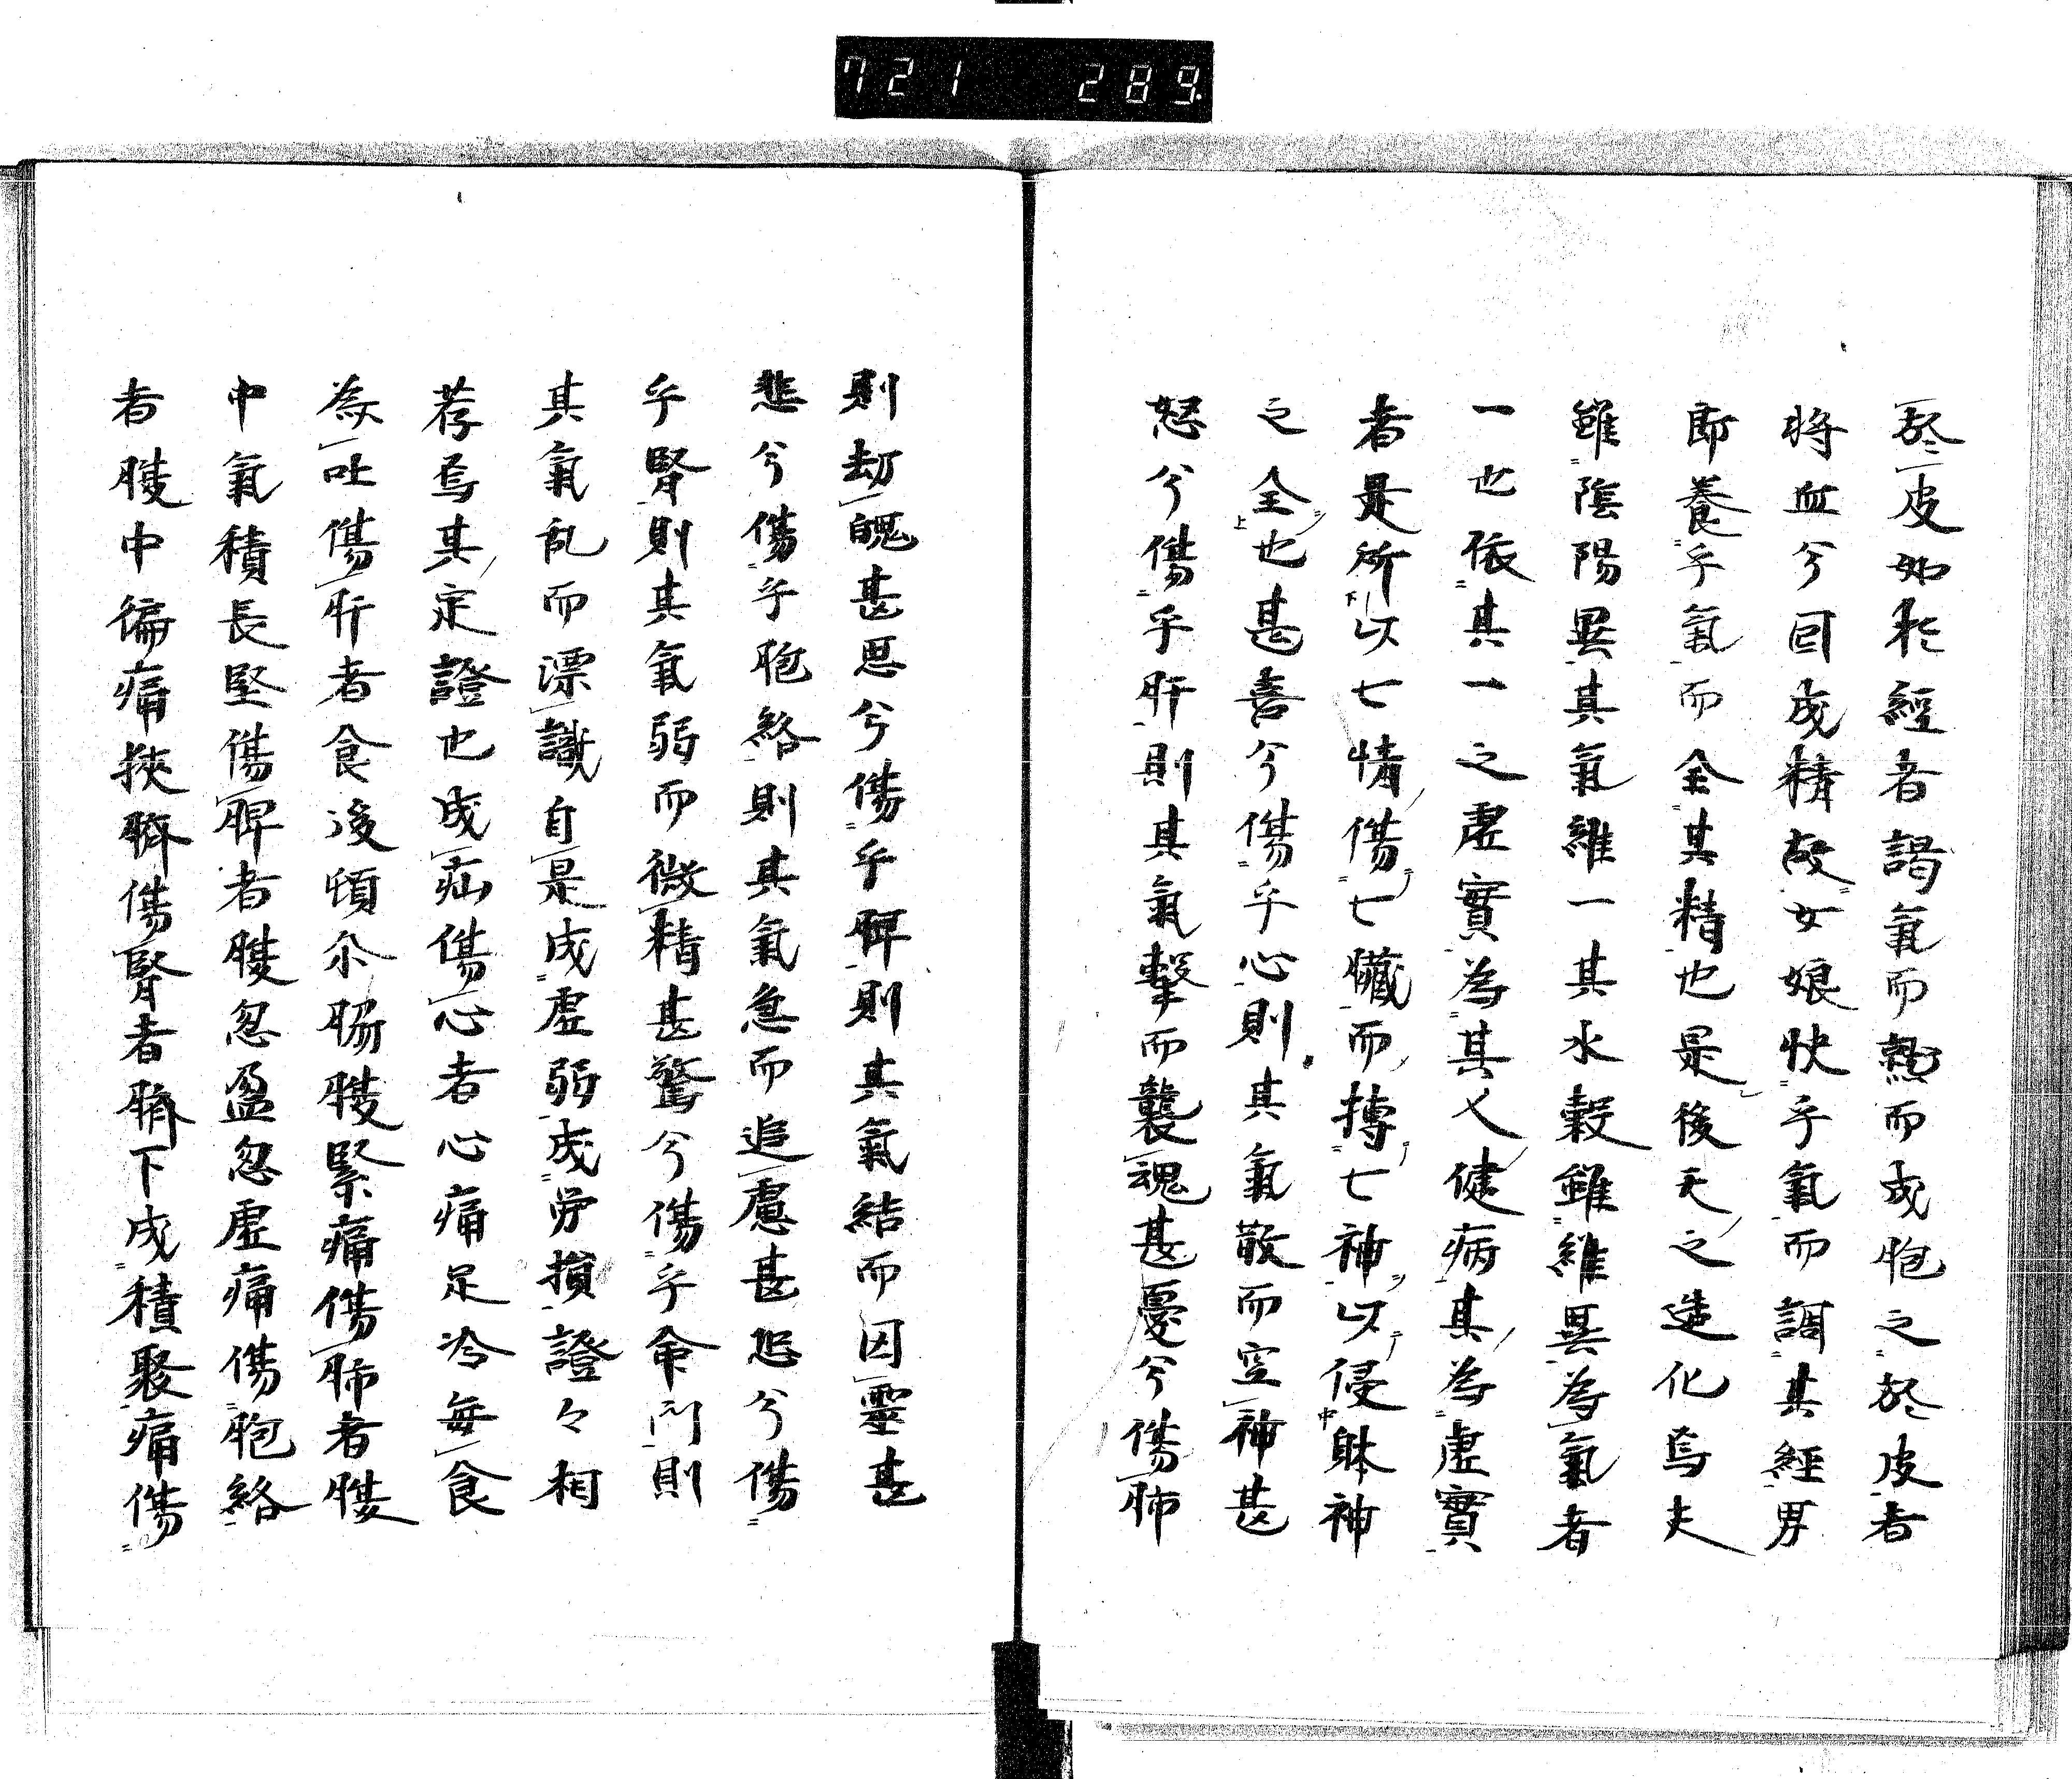 721 289
於皮如於經者謁氣而熱而成胞之於皮者
將血兮回成精故女娘快乎氣而調其經男
郎養乎氣而全其精也是後天之造化焉夫
雖陰陽異其氣維一其水穀雖維異為氣者
一也依其一之虛實為其人健病其為虛實
者是所以七情傷七臟而摶七神以侵躰神
之全也甚喜兮傷乎心則其氣散而空神甚
怒兮傷乎肝則其氣擊而襲魂甚憂兮傷肺
則劫魄甚思兮傷乎脾則其氣結而囚靈甚
悲兮傷乎胞絡則其氣急而追慮甚恐兮傷
乎腎則其氣弱而微精甚驚兮傷乎命門則
其氣乱而漂識自是成虛弱成労損證々相
荐焉其定證也成疝傷心者心痛足冷毎食
為吐傷肝者食後頓尒腸腹緊痛傷肺者腹
中氣積長堅傷脾者腹忽盈忽虛痛傷胞絡
者腹中徧痛挾臍傷腎者臍下成積聚痛傷